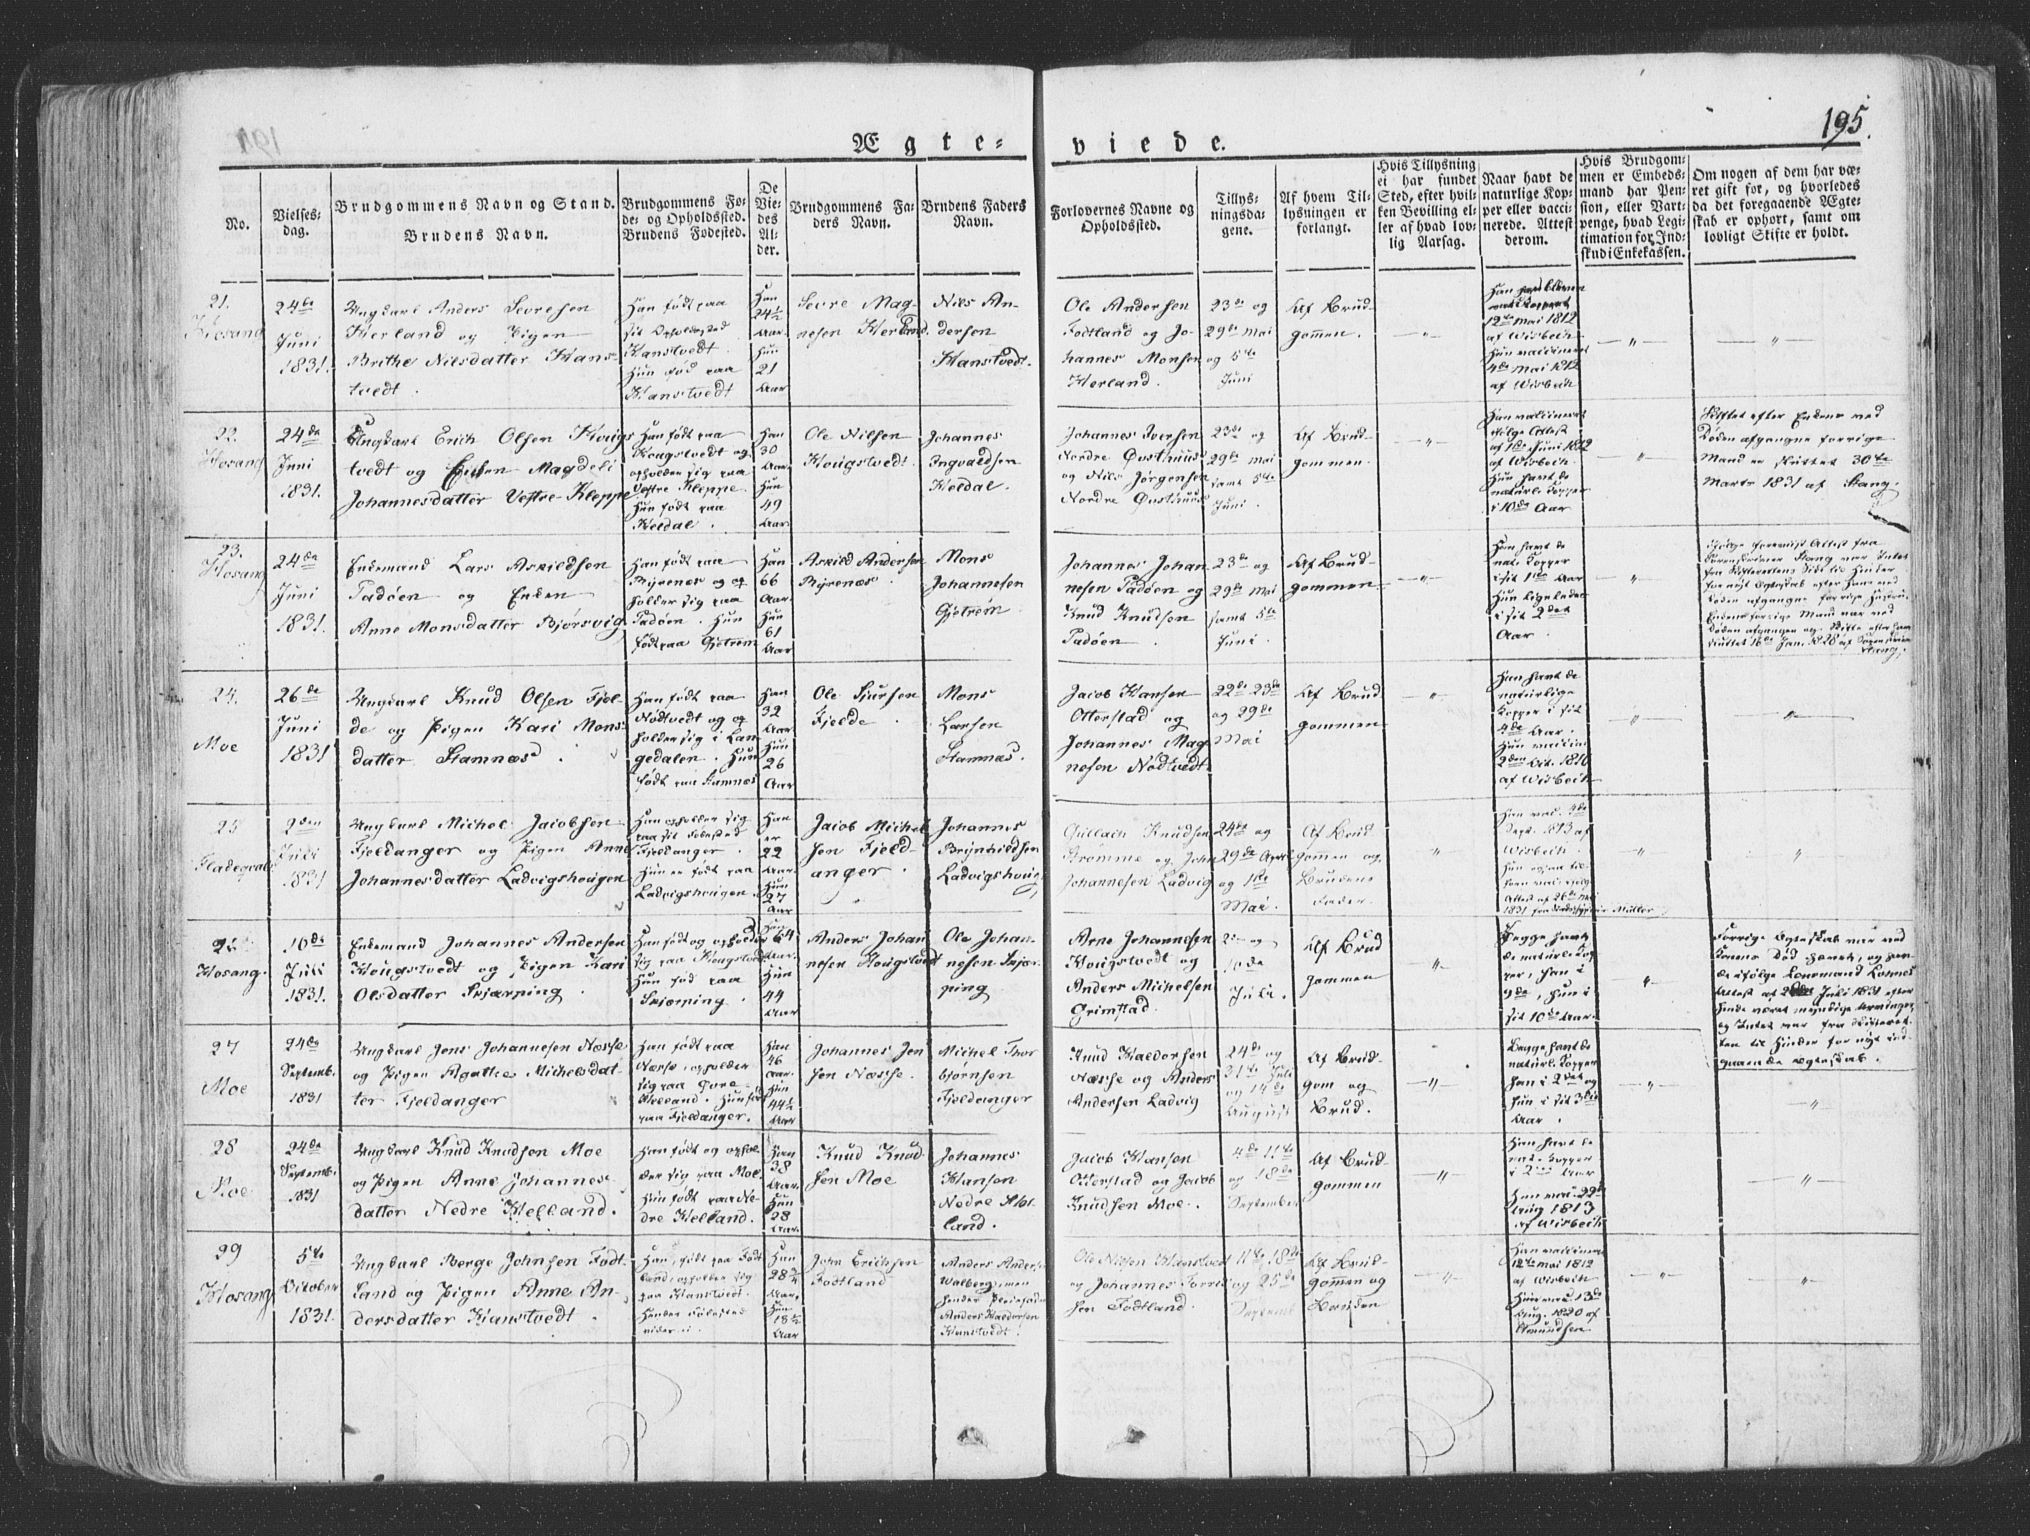 195.
Ægte-viede.
No.
Vielses-
dag.
Brudgommens Navn og Stand.
Brudens Navn.
Brudgommens Fø-
de- og Opholdssted.
Brudens Fødested.
De
Vie-
des
Al-
der.
Brudgommens Fa-
ders Navn.
Brudens Faders
Navn.
Forlovernes Navne og
Opholdssted.
Tillys-
ningsda-
gene.
Af hvem Til-
lysningen er
forlangt.
Hvis Tillysning
ei har fundet
Sted, efter hvil-
ken Bevilling el-
ler af hvad lov-
lig Aarsag.
Naar havt de
naturlige Kop-
per eller vacci-
nerede. Attest
derom.
Hvis Brudgom-
men er Embeds-
mand har Pen-
sion, eller Vart-
penge, hvad Legi-
timation for Ind-
skud i Enkekassen.
Om nogen af dem har væ-
ret gift før, og hvorledes
da det foregaaende Ægte-
skab er ophørt, samt om
lovligt Skifte er holdt.
21.
Hosang
24de
Juni
1831.
Ungkarl Anders Sevresen
Herland og Pigen
Brithe Nilsdatter Hans-
tvedt.
Han født paa
sit Opholdssted
Hanstvedt.
Hun fød paa
Hanstvedt
Han
24½
Aar
Hun
21
Aar
Sevre Mag-
nesen Herland.
Nils An-
dersen
Hanstvedt.
Ole Andersen
Fodtland og Jo-
hannes Monsen
Herland.
23de og
29de Mai
og 5te
Juni
Af Brud-
gommen.
12te Mai 1812
af Wisbech
Hun vaccineret
4de Mai 1812
af Wisbech
22.
Hosang
24de
Juni
1831.
Ungkarl Erich Olsen Hougs-
tvedt og Enken Magdeli
Johannesdatter Vestre-Kleppe
Han født paa
Hougstvedt og
opholder sig paa
Vestre Kleppe.
Hun født paa
Heldal.
Han
30
Aar
Hun
49
Aar
Ole Nilsen
Hougstvedt.
Johannes
Ingvaldsen
Heldal.
Johannes Iversen
Nordre Øvsthuus
og Nils Jørgensen
Nordre Øvsthuus
23de og
29de Mai
samt 5te
Juni.
Af Brud-
gommen.
Han vaccineret
ifølge Attest
af 1de Juni 1812
af Wisbech
Hun havt de
naturl: Kopper
i 10de Aar
Skiftet efter Enkens ved
Døden afgangne forrige
Mand er sluttet 30te
Marts 1831 af Stang.
23.
Hosang
24de
Juni
1831.
Enkemand Lars Askildsen
Tadøen og Enken
Anne Monsdatter Bjørsvig
Han født paa
Byrenæs og op-
holder sig paa
Tadøen. Hun
født paa Gjetrem
Han
66
Aar
Hun
61
Aar
Askild Andersen
Byrenæs.
Mons
Johannesen
Gjetrem
Johannes Johan
nesen Tadøen og
Knud Knudsen
Tadøen.
23de og
29de Mai
samt 5te
Juni.
Af Brud-
gommen.
Han havt de
nat: Kopper
i sit 1de Aar
Hun ligeledes
i sit 2det
Aar.
Ifølge foreviist Attest fra
Sorenskriver Stang var Intet
fra Skifterettens Side til Hinder
for nyt Egteskab efter Hans ved
Døden afgangne forrige Hustru.
Enkens forrige Mand var ved
Døden afgangen og Skifte efter ham
sluttet 16de Jan. 1828 af Sorenskriver
Stang.
24.
Moe
26de
Juni
1831
Ungkarl Knud Olsen Fjel-
de og Pigen Kari Mons-
datter Stamnæs.
Han født paa
Nødtvedt og op-
holder sig i Lan-
gedalen. Hun
født paa Stamnæs
Han
32
Aar
Hun
26
Aar
Ole Siursen
Fjelde.
Mons
Larsen
Stamnæs.
Jacob Hansen
Otterstad og
Johannes Mag-
nesen Nødtvedt
22de 23de
og 29de
Mai
Af Brud
gommen
Han havt de
naturlige
Kopper i sit
4de Aar.
Hun vaccin:
2den Oct. 1810
af Wisbech
25
2den
Juli
1831
Ungkarl Michel Jacobsen
Fjeldanger og Pigen Anne
Johannesdatter Ladvigshougen
Han opholder sig
paa sit Fødested
Fjeldanger.
Hun er født paa
Ladvigshougen.
Han
er
22
Aar
Hun
27
Aar
Jacob Michel
sen Fjeld-
anger.
Johannes
Brynhildsen
Ladvigshoug
Gullach Knudsen
Strømme og John
Johannesen Ladvig
24de og
29de April
og 1de
Mai.
Af Brud
gomen og
Brudens
Fader.
Han vac. 4de
Sept. 1813 af
Wisbech.
26.
Hosang.
10de
Juli
1831.
Enkemand Johannes Andersen
Hougstvedt og Pigen Kari
Olsdatter Skjærping.
Han født og opholder
sig paa Hougstvedt
Hun fød paa
Skjærping.
Han
64
Aar
Hun
44
Aar
Anders Johan
nesen Hougstvedt
Ole Johan-
nesen Skjær-
ping
Arne Johannesen
Hougstvedt og
Anders Michelsen
Grimstad.
og
10de
Juli.
Af Brud
gommen
Begge havt
de naturl: Kop-
per, han i
9de, hun i
sit 10de Aar.
Forrige Egteskab var ved
Konens Død hævet, og hav-
de ifølge Lensmand Lonnes
Attest af Juli 1831 efter
hende været myndige Arvinger,
og Intet var fra Skifteret-
ten til Hinder for nyt ind-
gaaende Egteskab.
27
Moe
24de
Septemb.
1831
Ungkarl Jens Johannesen Næsse
og Pigen Agathe Michelsdat-
ter Fjeldanger
Han født paa
Næsse, opholder
sig paa Øvre
Helland. Hun fød
paa Fjeldanger.
Han
46
Aar.
Hun
44½
Aar
Johannes Jen
sen Næsse.
Michel Thor
bjørnsen
Fjeldanger
Knud Haldorsen
Næsse og Anders
Andersen Ladvig
24de og
31te Juli
og 14de
August
Af Brud-
gom og
Brud.
Begge havt de
naturl: Kopper
han i 2det og
hun i sit 3die
Aar.
28
Moe
24de
Septemb.
1831
Ungkarl Knud Knudsen Moe
og Pigen Anne Johannes-
datter Nedre Helland.
Han født og ophol
der sig paa Moe.
Hun født paa Ne-
dre Helland.
Han
38
Aar.
Hun
28
Aar.
Knud Knud
sen Moe
Johannes
Hansen
Nedre Hel-
land.
Jacob Hansen
Otterstad og Jacob
Knudsen Moe.
4de 11te
og 18de
September
Af Brud-
gommen
Han havt de
nat: Kopper
i 2 Aar
Hun vac: 22de
Aug 1813
af Wisbech
29
Hosang
5te
October
1831.
Ungkarl Berge Johnsen Fodt-
land og Pigen Anne An-
dersdatter Hanstvedt.
Han født paa Fodt
land, opholder sig
paa Hanstvedt.
Han
28¾
Aar,
Hun
18½
Aar
John Erichsen
Fodtland
Anders Andersen
Walberg, men
hendes Pleiefader
Anders Haldorsen
Hanstvedt.
Ole Nilsen Hanstvedt
og Johannes Torris
sen Fodtland.
11te, 18de
og 25de
Septemb
Af Brud-
gommen og
Bruden
Han vaccineret
12te Mai 1812
af Wisbech
Hun vac: 13de
Aug. 1820 af
Amundsen